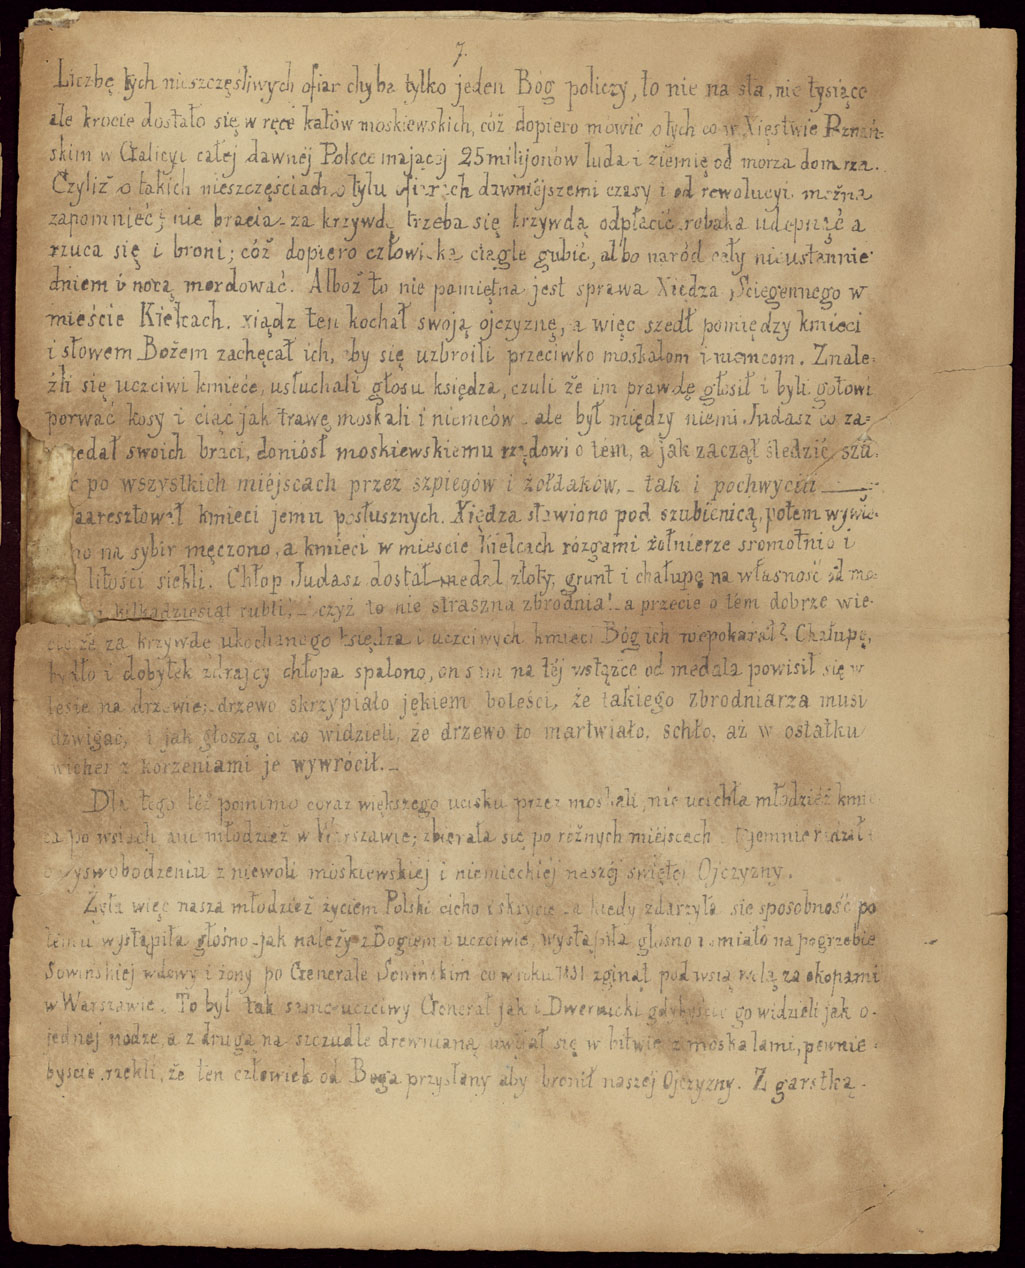 7.
Liczbę tych nieszczęśliwych ofiar chyba tylko jeden Bóg policzy, to nie na sta, nie tysiące
ale krocie dostało się w ręce katów moskiewskich, cóż dopiero mówić o tych co w Xięstwie Poznań-
skim w Galicyi całej dawnéj Polsce mającej 25 milijonów luda i ziemię od morza do morza.
Czyliż o takich nieszczęściach o tylu ofiarach dawniejszemi czasy i od rewolucyi można
zapomnieć; nie bracia za krzywdę trzeba się krzywdą odpłacić robaka udepnąć a
rzuca się i broni; cóż dopiero człowieka ciągle gubić, albo naród cały nieustannie
dniem i nocą mordować. Alboż to nie pomiętna jest sprawa Xiędza Ściegennego w
mieście Kielcach. xiądz ten kochał swoją ojczyznę, a więc szedł pomiędzy kmieci
i słowem Bożem zachęcał ich, by się uzbroili przeciwko moskalom i niemcom. Znale-
źli się uczciwi kmiecie, usłuchali głosu księdza, czuli że im prawdę głosił i byli gotowi
porwać kosy i ciąć jak trawę moskali i niemców - ale był między niemi Judasz co za-
przedał swoich braci, doniósł moskiewskiemu rządowi o tem, a jak zaczął śledzić, szu-
po wszystkich miejscach przez szpiegów i żołdaków, - tak i pochwycił
zaaresztował kmieci jemu posłusznych. Xiędza stawiono pod szubienicą, potem wywie-
no na sybir męczono, a kmieci w mieście Kielcach rózgami żołnierze sromotnie i
litości siekli. Chłop Judasz dostał medal złoty, grunt i chałupę na własność od mo-
i kilkadziesiąt rubli! - czyż to nie straszna zbrodnia! - a przecie o tem dobrze wie-
cie że za krzywdę ukochanego księdza i uczciwych kmieci Bóg ich niepokarał? Chałupę,
bydło i dobytek zdrajcy chłopa spalono, on sam na téj wstążce od medala powisił się w
lesie na drzewie; drzewo skrzypiało jękiem boleści, że takiego zbrodniarza musi
dźwigać, i jak głoszą ci co widzieli, że drzewo to martwiało, schło, aż w ostatku
wicher z korzeniami je wywrócił. -
Dla tego też pomimo coraz większego ucisku przez moskali, nie ucichła młodzież kmie
ca po wsiach ani młodzież w Warszawie; zbierała się po różnych miejscach
wyswobodzeniu z niewoli moskiewskiej i niemieckiéj naszéj świętéj Ojczyzny.
Żyła więc nasza młodzież życiem Polski cicho i skrycie - a kiedy zdarzyła sie sposobność po
temu wystąpiła głośno - jak należy z Bogiem i uczciwie, wystąpiła głosno i smiało na pogrzebie
Sowinskiej wdowy i żony po Generale Sowińskim co w roku 1831 zginął pod wsią Wolą za okopami
w Warszawie. To był tak samo uczciwy Generał jak i Dwernicki gdybyście go widzieli jak o-
jednej nodze, a z drugą na szczudle drewnianą uwijał się w bitwie z moskalami, pewnie -
byście rzekli, że ten człowiek od Boga przysłany aby bronił naszej Ojczyzny. Z garstką -